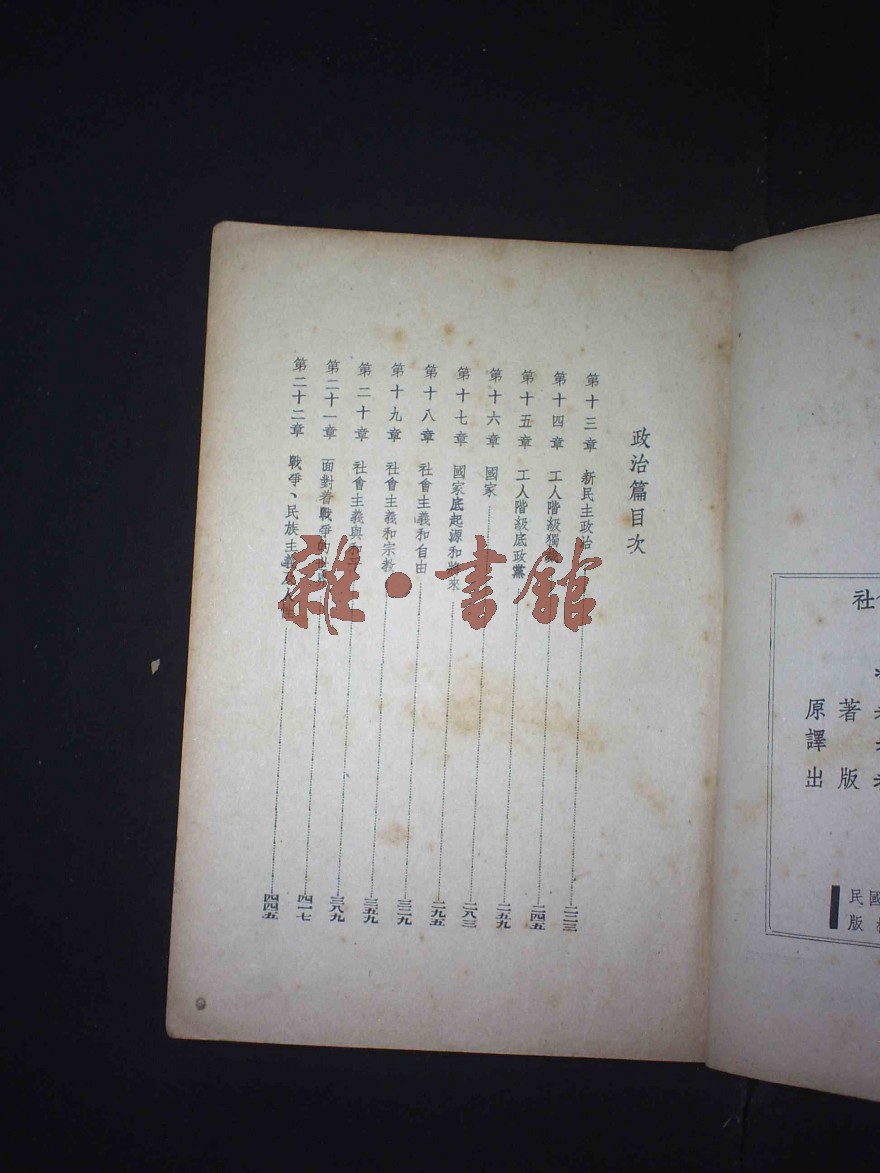 政治篇目次
第十三章 新民主政治 二二三
第十四章 工人階級獨 二四五
第十五章 工人階級底政黨 二五九
第十六章 國家 二八三
第十七章 國家底起源和將來 二九五
第十八章 社會主義和自由 三二九
第十九章 社會主義和宗教 三五九
第二十章 社會主義與和平 三八九
第二十一章 面對着戰爭的世 四一七
第二十二章 戰爭、民族主義及人性 四四五
雜·書館
社
原著
譯
出版
民國
版